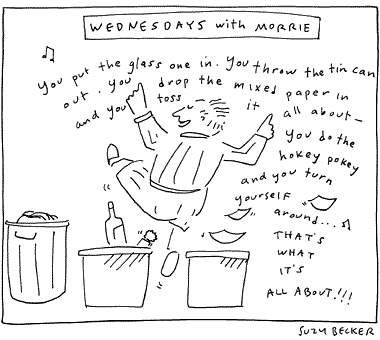 WEDNESDAYS with MORRIE
You put the glass one in. You throw the tin can
out. You drop the mixed paper in
and you toss it all about—
you do the
hokey pokey
and you turn
yourself
around...
THAT'S
WHAT
IT'S
ALL ABOUT!!!
SUZY BECKER